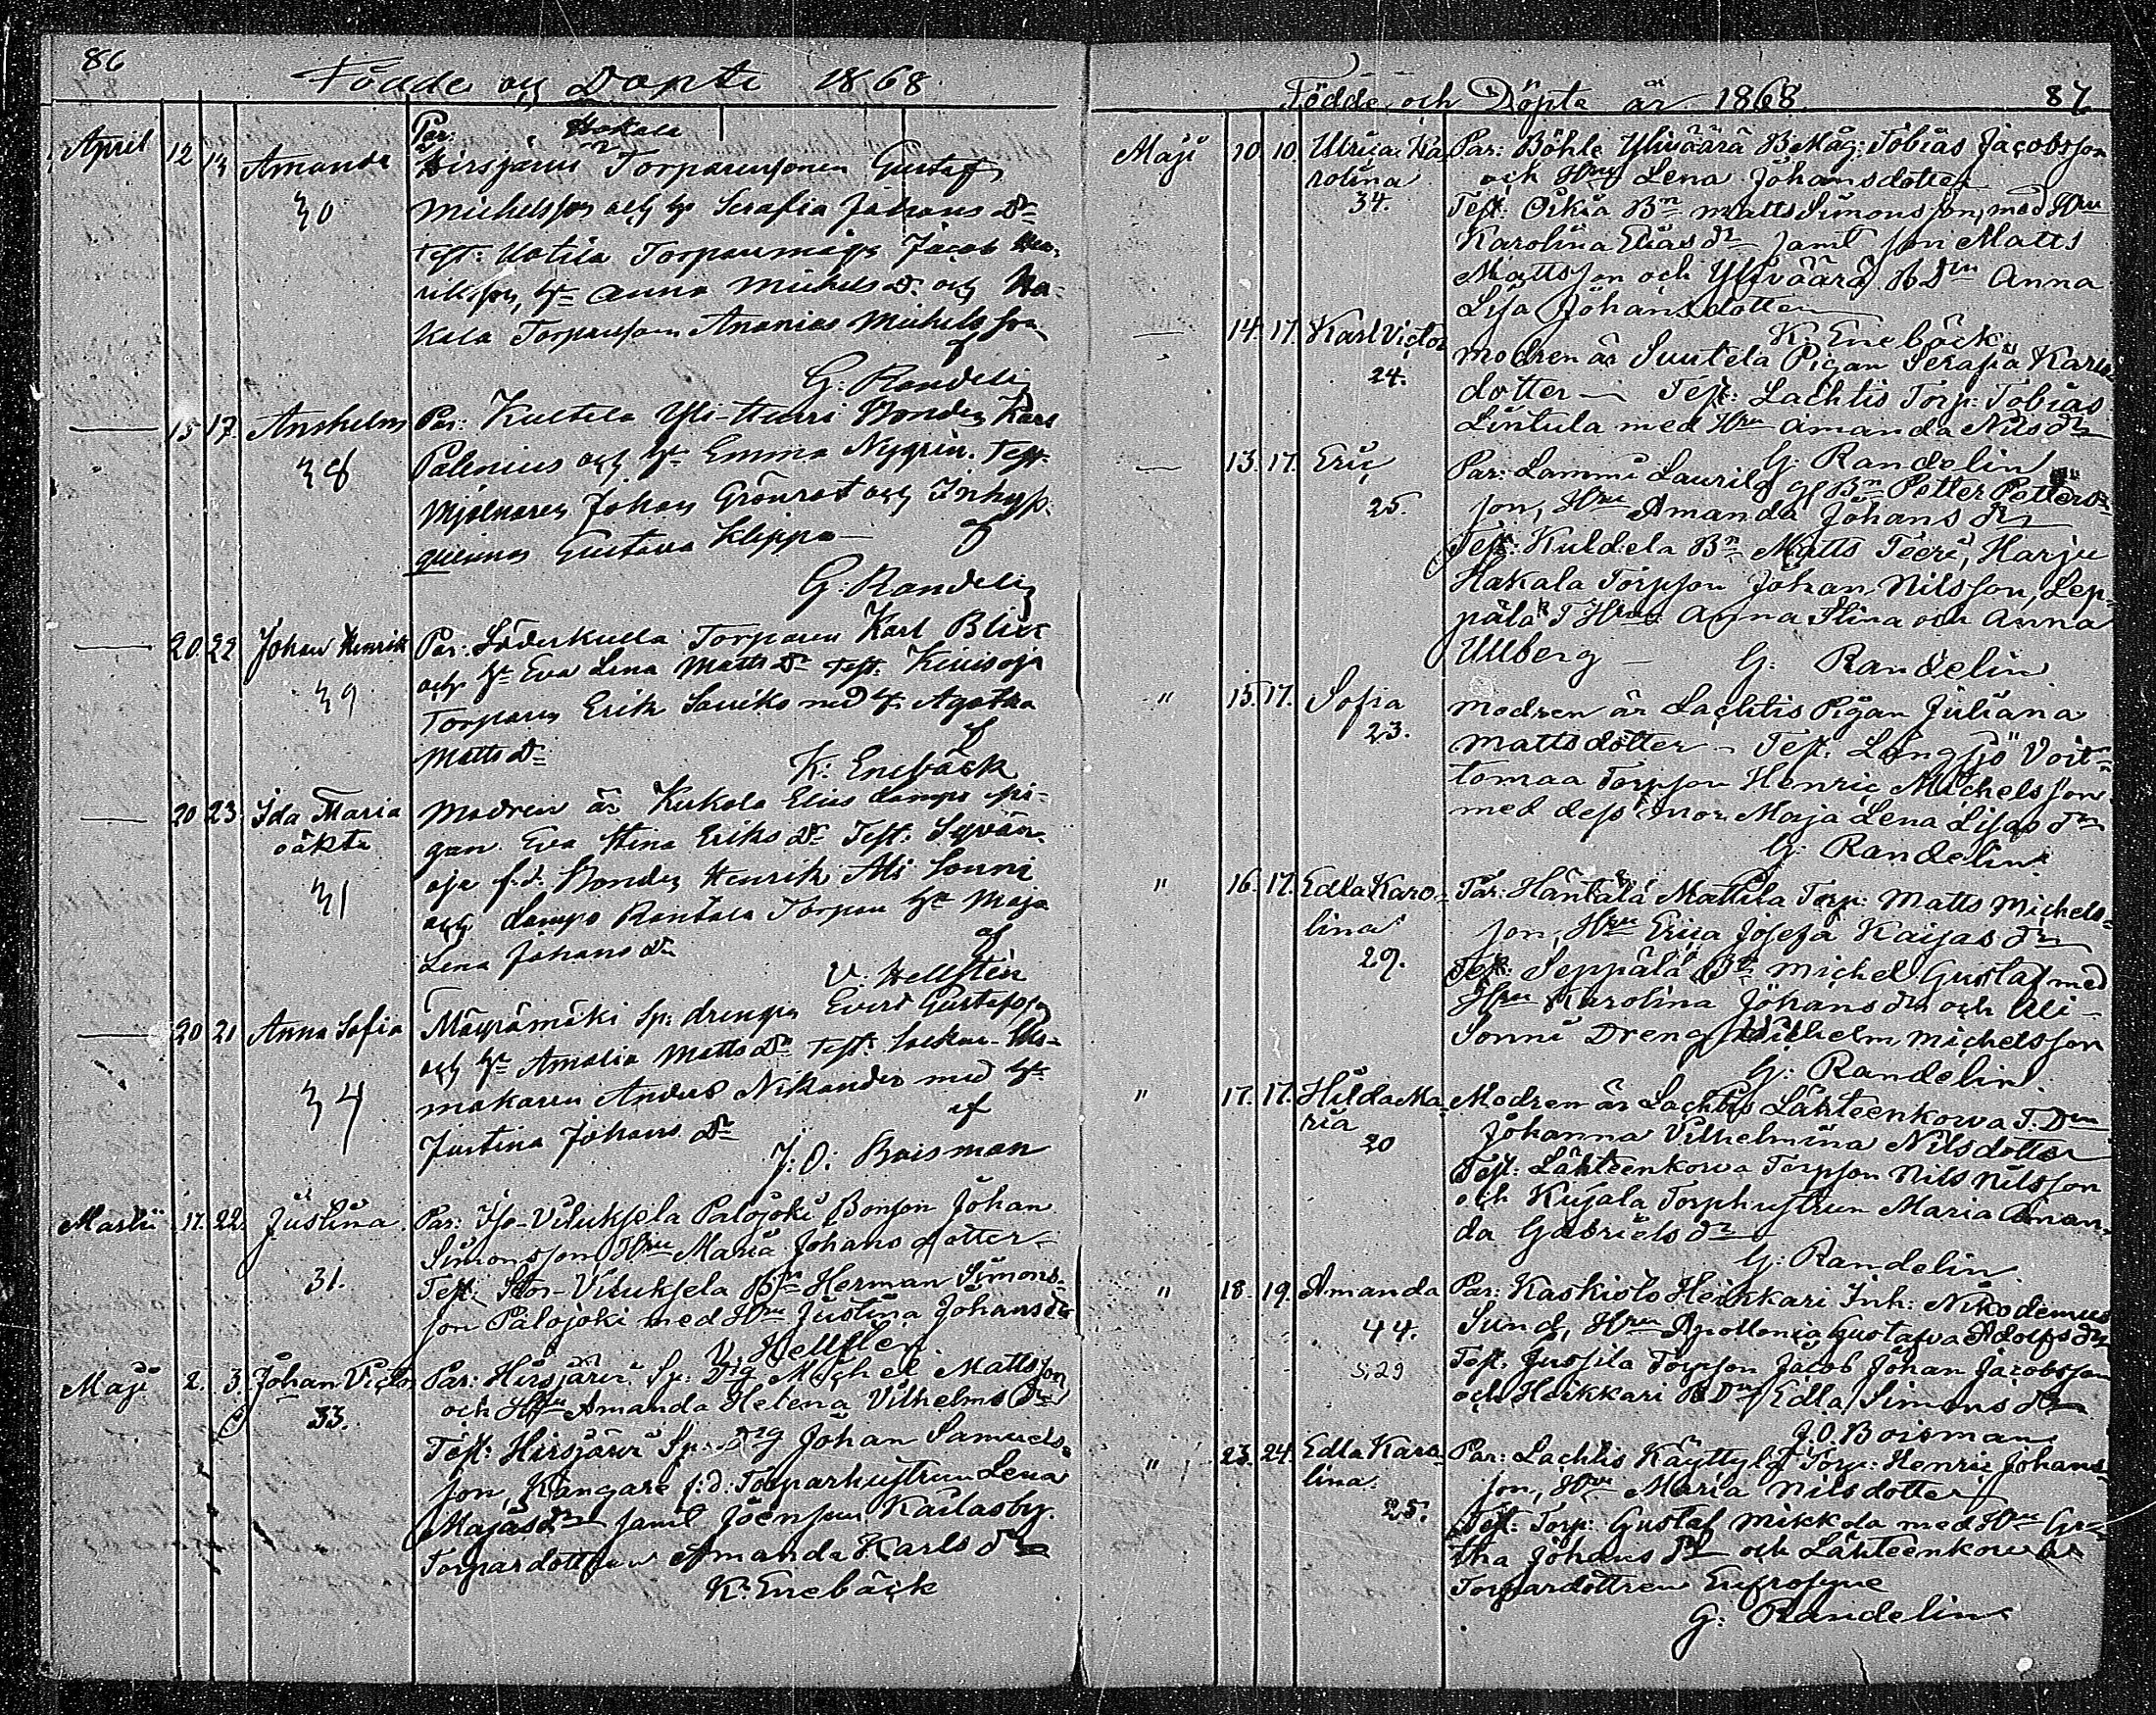 86
Födde och Döpte 1868
April 12 14 Amanda Par: Hakala
Hirsjärvi Torparensonen Gustaf
30 Michelsson och h. Serafia Johans Dr
Test: Kotila Torparemågen Jacob Hen-
riksson, hu Anna Michels D. och Ha-
kala Torpareson Ananias Michelsson
af
G. Randelin
15 17 Anshelm Par: Kultela Yli-Hurri Bonden Karl
38 Palenius och hu Emma Nygrén. Test:
Mjölnaren Johan Grönroos och Inhyses
qvinnan Gustava Klippa af
G. Randelin
20 22 Johan Henrik Par: Söderkulla Torparen Karl Blixt
39 och hu Eva Lena Matts Dr Test: Kiiisoja
Torparen Erik Saviko med h. Agatha
Matts Dr af
K: Enebäck
20 23 Ida Maria Modren är Kukola Elias Lampo pi-
oäkta gan Eva Stina Eriks Dr Test: Syvän-
31 oja f.d. Bonden Henrik Ali Sonni
och Lampo Rantala Torpare hu Maja
Lena Johans Dr af
V. Hellstén
20 21 Anna Sofia Mäyrämäki Sp: drengen Evert Gustafsson
och hu Amalia Matts Dr Test:
34 makaren Anders Nikander med hu
Justina Johans Dr af
J: O: Boisman
Martii 17. 22. Justina. Par: Iso-Viluksela Palojoki Bonson Johan
Simonsson, Hru Maria Johans dotter
31. Test: Stor-Viluksela Bn Herman Simons-
son Palojoki med Hru Justina Johansdr
V. Hellstén
Maji 2. 3. Johan Victor Par: Hirsjärvi Sp: Drg Michel Mattsson
33. och Hru Amanda Helena Vilhelms Dr
Test: Hirsjärvi Sp: Drg Johan Samuels-
son, Kangare f:d: Torparhustrun Lena
Majasdr samt Joensuu Kailasby.
Torpardottren Amanda Karls dr
K. Enebäck
Födde och Döpte år 1868 87
Maji 10 10. Ulrica Ka- Par: Böhle Yliväärä B.Måg: Tobias Jacobsson
rolina och Hru Lena Johansdotter
34. Test: Oikia Bn Matts Simonsson, med Hru
Karolina Elias dr samt son Matts
Mattsson och Ylivääräs B Drn Anna
Lisa Johansdotter
K. Enebäck
14. 17. Karl Victor modren är Suutela Pigan Serafia Karls-
24. dotter Test: Lachtis Torp: Tobias
Lintula med Hru Amanda Nils dr
G. Randelin
13. 17. Eric Par: Lammi Laurila gl Bn Petter Petters-
25. son, Hru Amanda Johans dr
Test: Kuldela Bn Matts Teeri, Harju
Hakala Torpson Johan Nilsson, Lep-
pälä T Hrun Anna Stina och Anna
Ullberg G. Randelin
" 15. 17. Sofia modren är Lachtis Pigan Juliana
23. mattsdotter Test: Långsjö Voit-
tomaa Torpson Henric Michelsson
med dess mor Maja Lena Lisas dr
G. Randelin
" 16. 17. Edla Karo- Par: Häntälä Mattila Torp: Matts Michels-
lina son, Hru Erica Josefa Kaisas dr
29. Test: Seppälä Bn Michel Gustaf med
Hru Karolina Johans dr och Ali-
Sonni Dreng Wilhelm Michelsson
G. Randelin.
" 17. 17. Hilda Ma- Modren är Lachtis Lähteenkorva T. Drn
ria Johanna Vilhelmina Nilsdotter
20 Test: Lähteenkorva Torpson Nils Nilsson
och Kujala Torphustrun Maria Aman-
da Gabriels dr
G. Randelin
" 18. 19. Amanda Par: Kaskisto Heikkari Inh: Nikodemus
44. Sund, Hru Apollonia Gustava Adolfs dr
S. 29 Test. Jussila Torpson Jacob Johan Jacobsson
och Heikkari B Drn Edla Simons dr
J.O. Boisman
" 23. 24. Edla Karo- Par: Lachtis Käyttylä Torp: Henric Johans-
lina. son, Hru Maria Nilsdotter
25. Test: Torp: Gustaf Mikkola med Hru Gre-
tha Johans dr och Lähteenkorva
Torpardottren Eufrosyne
G. Randelin